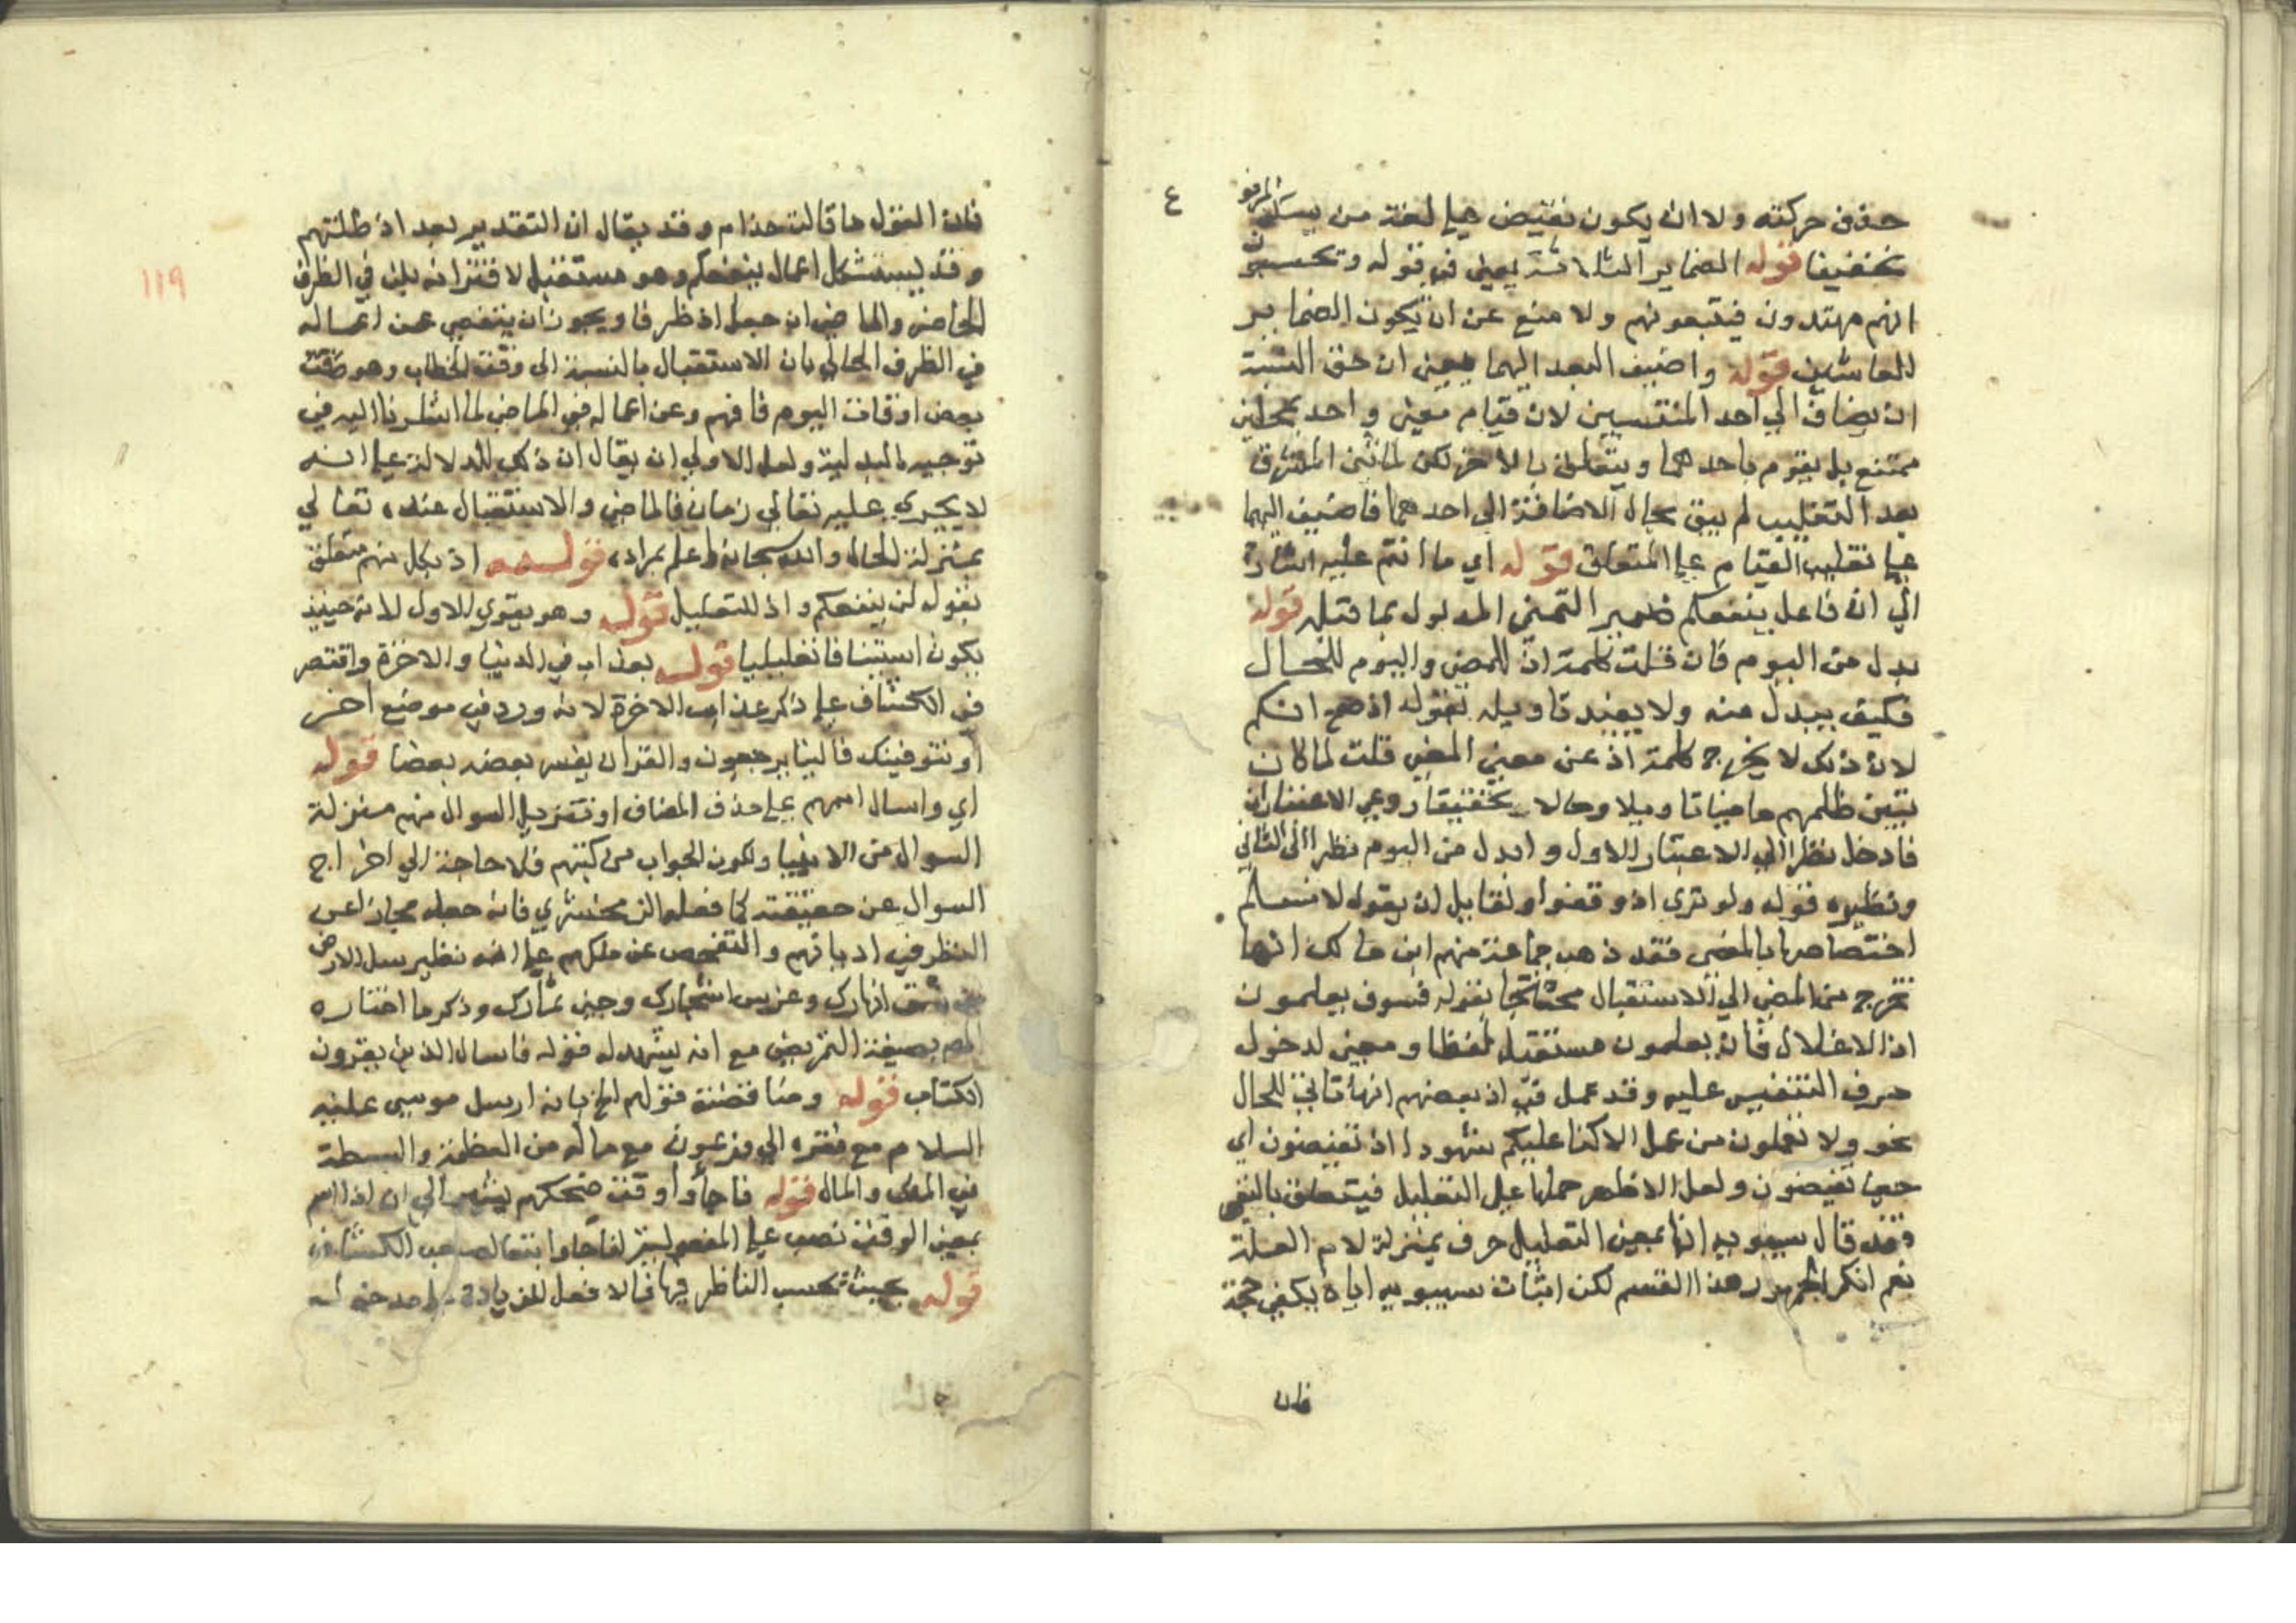 حذف حركته ولا ان يكون نقيض على لغة من يسكن المرفو
ع
تخفيفا قوله الضماير الثلاثة يعني في قوله وتحسبون
انهم مهتدون فيتبعونهم ولا منع عن ان يكون الضماير
للعاشين قوله واضيف البعد اليهما يعني ان حق النسبة
ان يضاف الي احد المنتسبين لان قيام معنى واحد بمحلين
ممتنع بل يقوم باحدهما ويتعلق بالاخر لكن لما ثنى المشرق
بعد التغليب لم يبق مجال الاضافة الى احدهما فاضيف اليهما
على تغليب القيام على المتعلق قوله اي ما انتم عليه اشارة
الي ان فاعل ينفعكم ضمير التمني المدلول بما قبله قوله
بدل من اليوم فان قلت كلمة اذ للمضي واليوم للحال
فكيف يبدل منه ولا يفيد تاويله بقوله اذ صح انكم
لان ذلك لا يخرج كلمة اذ عن معنى المضي قلت لما كان
تبين ظلمهم ماضيا تاويلا وحالا تحقيقا روعي الاعتباران
فادخل نظرا الي الاعتبار الاول وابدل من اليوم نظرا الى الثاني
ونظيره قوله ولو ترى اذ وقفوا ولقايل ان يقول لا نسلم
اختصاصها بالمضى فقد ذهب جماعة منهم ابن مالك انها
تخرج من المضي الي الاستقبال محتجا بقوله فسوف يعلمون
اذ الاغلال فان يعلمون مستقبل لفظا ومعنى لدخول
حرف التنفيس عليه وقد عمل في اذ بعضهم انها تاتي للحال
نحو ولا تعملون من عمل الا كنا عليكم شهودا اذ تفيضون اي
حين تفيضون ولعل الاظهر حملها على التعليل فيتعلق بالنفى
فقد قال سيبويه انها بمعنى التعليل حرف بمنزلة لام العلة
نعم انكر الجمهور هذا القسم لكن اثبات سيبويه اياه يكفي حجة
فان
١١٩
فان القول ما قالت حذام وقد يقال ان التقدير بعد اذ ظلمتم
وقد يستشكل اعمال ينفعكم وهو مستقبل لاقترانه بلن في الظرف
الحاضر والماضي ان جعل اذ ظرفا ويجوز ان يتفصى عن اعماله
في الظرف الحالي بان الاستقبال بالنسبة الى وقت الخطاب وهو
بعض اوقات اليوم فافهم وعن اعماله في الماضي لما اشرنا اليه في
توجيه البدلية ولعل الاولي ان يقال ان ذكب للدلالة على انه
لا يجري عليه تعالى زمان فالماضي والاستقبال عنده تعالي
بمنزلة الحال والله سبحانه اعلم بمراده قوله اذ بكل منهم متعلق
بقوله لن ينفعكم واذ للتعليل قوله وهو يقوي الاول لانه حينيذ
يكون استينافا تعليليا قوله بعذاب في الدنيا والاخرة واقتصر
في الكشاف على ذكر عذاب الاخرة لانه ورد في موضع اخر
او نتوفينك فالينا يرجعون والقران يفسر بعضه بعضا قوله
اي واسال اممهم على حذف المضاف او تنزيل السوال منهم منزلة
السوال من الانبيا ولكون الجواب من كتبهم فلا حاجة الي اخراج
السوال عن حقيقته كما فعله الزمخشري فانه جعله مجازا عن
النظر في اديانهم والتفحص عن مللهم على انه نظير سل الارض
من شق انهارك وغرس اشجارك وجنى ثمارك وذكر ما اختاره
المص بصيغة التمريض مع انه يشهد له قوله فاسال الذين يقرون
الكتاب قوله ومناقضة قولهم الخ بانه ارسل موسى عليه
السلام مع فقره الي فرعون مع ماله من العظمة والبسطة
في الملك والمال قوله فاجأوا وقت ضحكهم يشير الي ان اذا اسم
بمعنى الوقت نصب على المفعولية لفاجاوا بتعا لصاحب الكشاف
قوله بحيث تحسب الناظر فيها فالافعل للزيادة